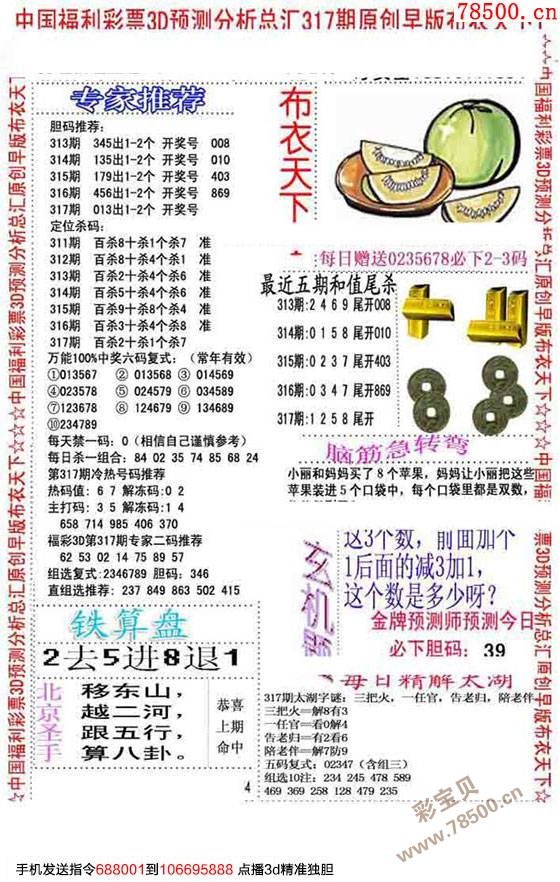 中国福利彩票3D预测分析总汇317期原创早版布衣天下
78500.cn
专家推荐
胆码推荐:
313期 345出1-2个 开奖号 008
314期 135出1-2个 开奖号 010
315期 179出1-2个 开奖号 403
316期 456出1-2个 开奖号 869
317期 013出1-2个 开奖号
定位杀码:
311期 百杀8十杀1个杀7 准
312期 百杀8十杀4个杀1 准
313期 百杀2十杀4个杀6 准
314期 百杀5十杀4个杀6 准
315期 百杀9十杀8个杀4 准
316期 百杀3十杀4个杀8 准
317期 百杀2十杀1个杀7
万能100%中奖六码复式:(常年有效)
①013567 ② 013568 ③ 014569
④023578 ⑤ 024579 ⑥ 034589
⑦123678 ⑧ 124679 ⑨ 134689
⑩234789
每天禁一码: 0 (相信自己谨慎参考)
每日杀一组合: 84 02 35 74 85 68 24
第317期冷热号码推荐
热码值: 6 7 解冻码:0 2
主打码: 3 5 解冻码:1 4
658 714 985 406 370
福彩3D第317期专家二码推荐
62 53 02 14 75 89 57
组选复式:2346789 胆码: 346
直组选推荐: 237 849 863 502 415
铁算盘
2去5进8退1
北京圣手
移东山,
越二河,
跟五行,
算八卦。
恭喜
上期
命中
4
布衣天下
每日赠送0235678必下2-3码
最近五期和值尾杀
313期:2 4 6 9 尾开008
314期:0 1 5 8 尾开010
315期:0 2 3 7 尾开403
316期:0 3 4 7 尾开869
317期:1 2 5 8 尾开
脑筋急转弯
小丽和妈妈买了8个苹果,妈妈让小丽把这些
苹果装进5个口袋中,每个口袋里都是双数,
玄机
这3个数, 前面加个
1后面的减3加1,
这个数是多少呀?
金牌预测师预测今日
必下胆码: 39
每日精解太湖
317期太湖字谜: 三把火,一任官,告老归,陪老伴。
三把火=解8有3
一任官=看0解4
告老归=有2看6
陪老伴=解7防9
五码复式: 02347 (含组三)
组选10注: 234 245 478 589
469 369 258 128 479 235
中国福利彩票3D预测分析总汇原创早版布衣天下☆☆☆
彩宝贝
www.78500.cn
手机发送指令688001到106695888 点播3d精准独胆